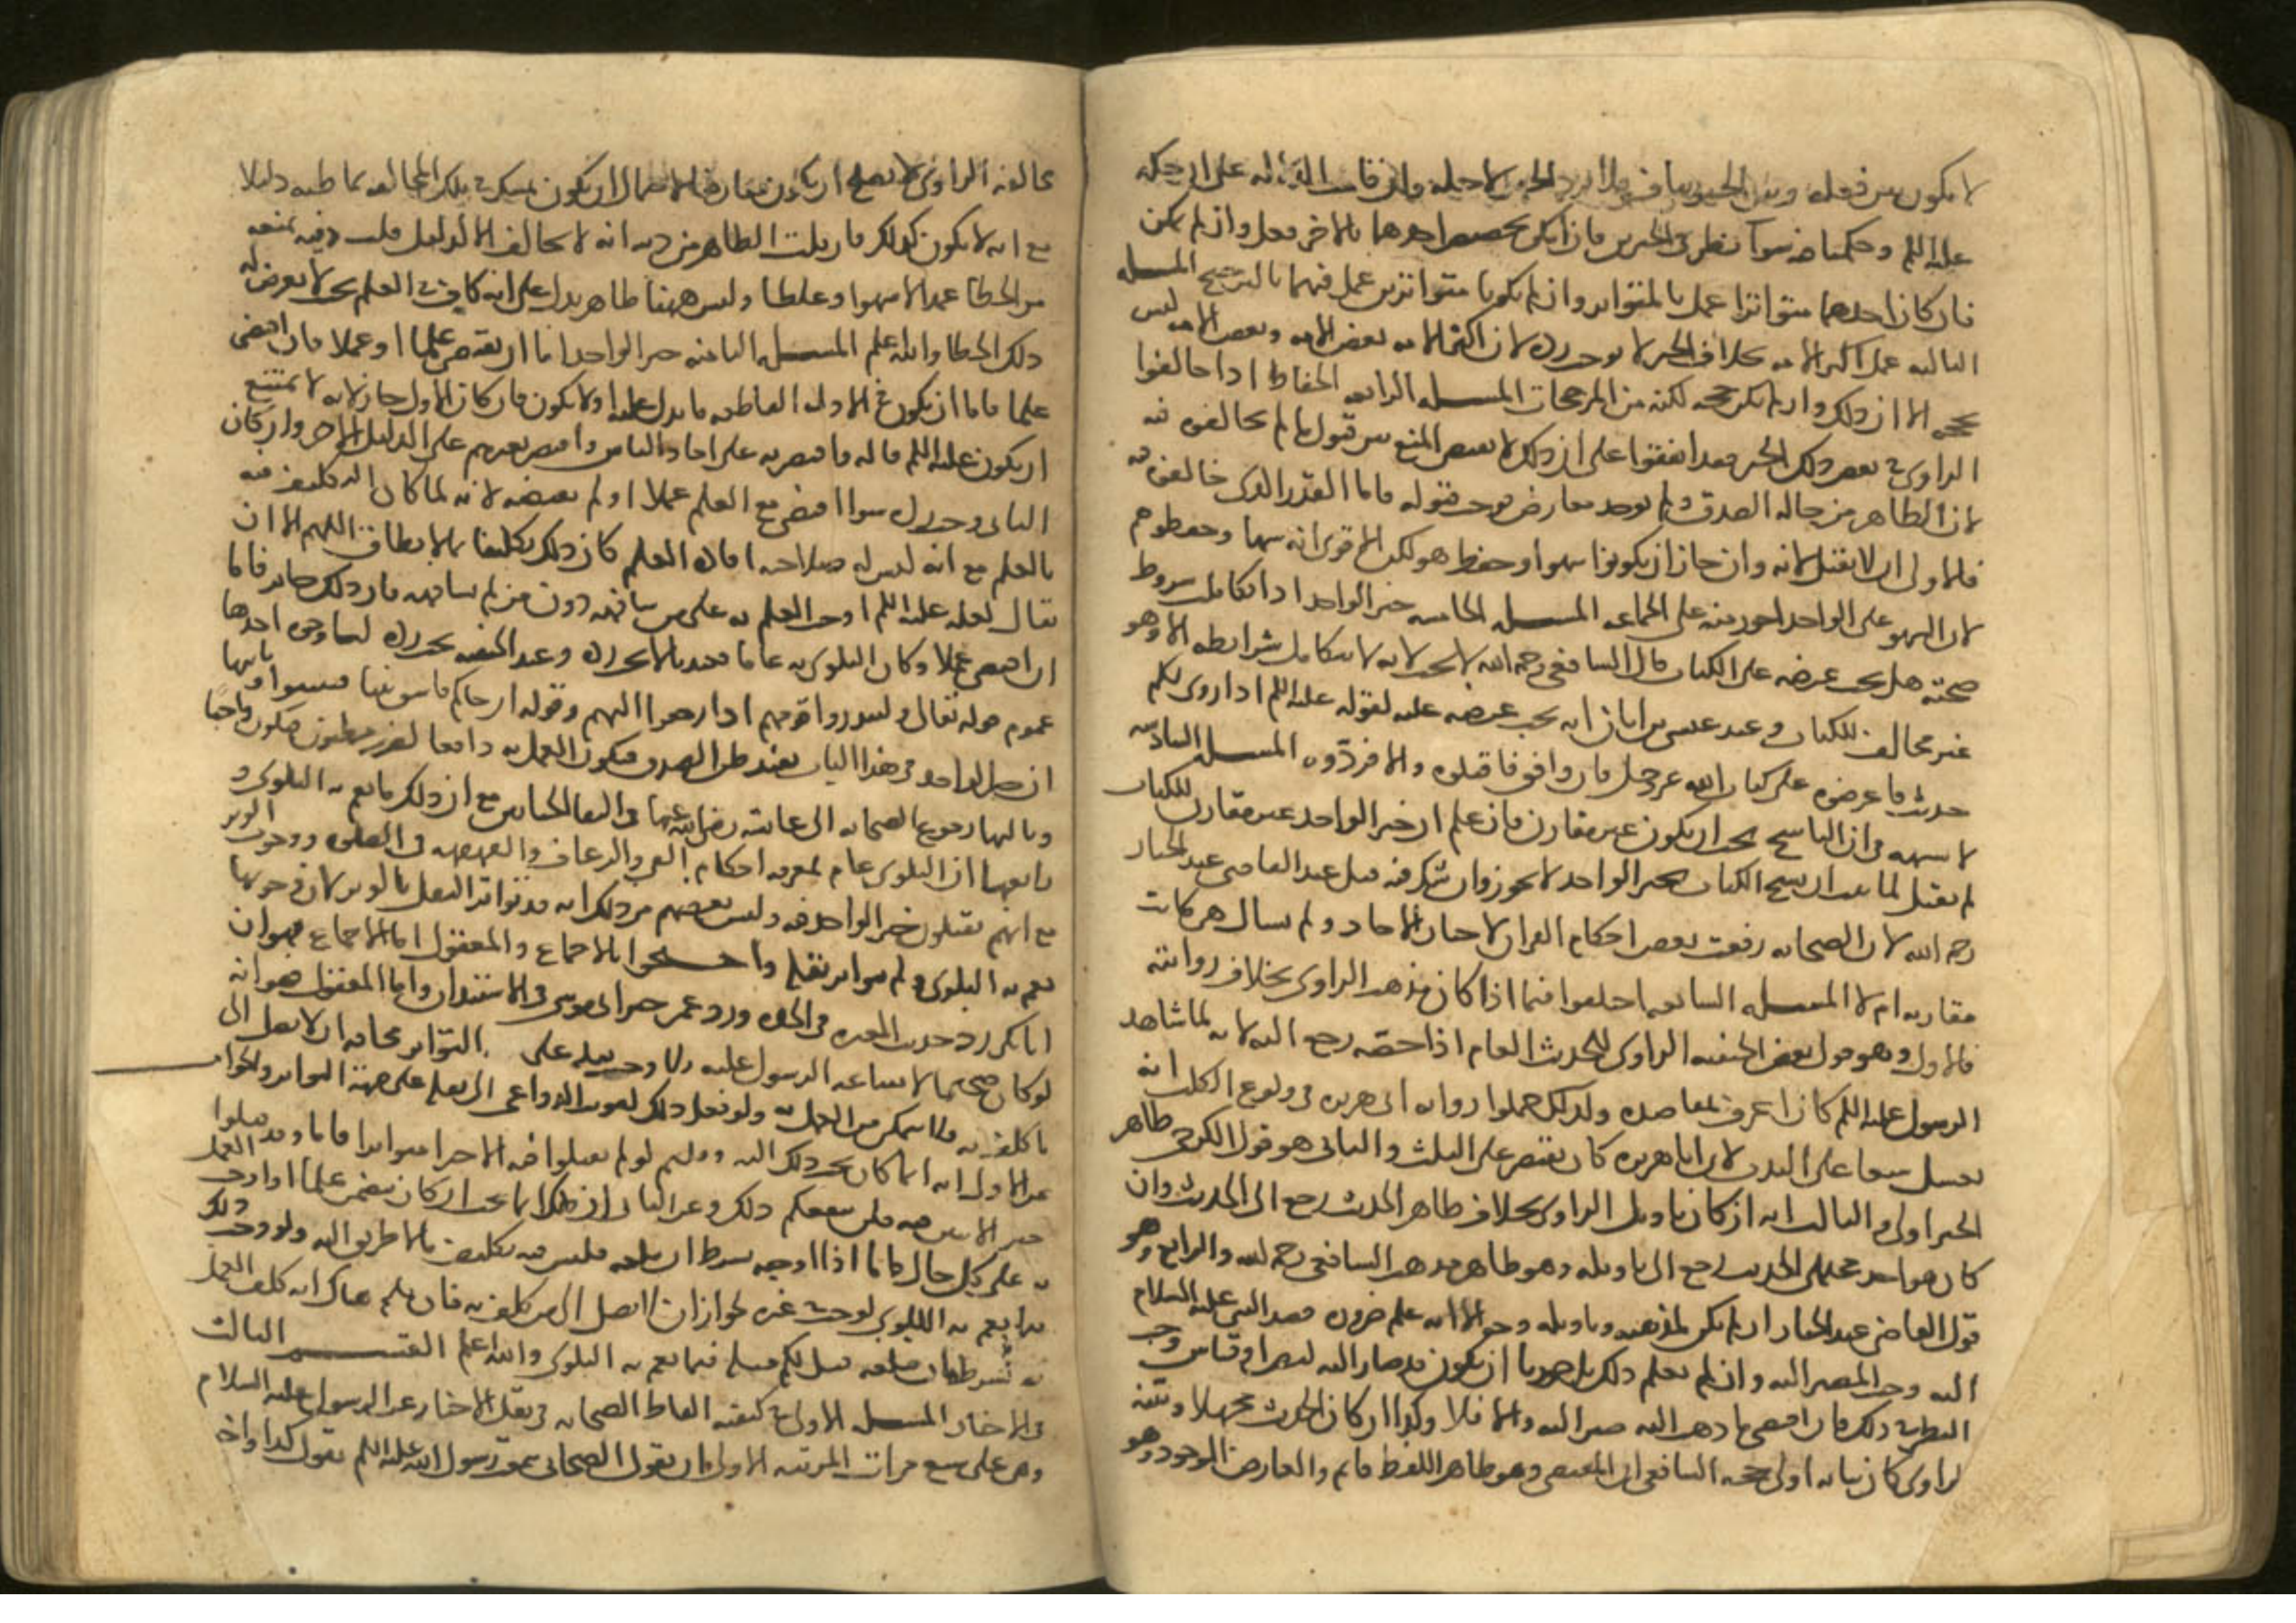 لا يكون بين فعله وبين الخبر تناف فلا يرد الخبر لاجله وان قامت الدلالة على ان حكمه
عليه السلم وحكمنا فيه سوا نظر في الخبرين فان امكن تخصيص احدهما بالاخر فعل وان لم يمكن
فان كان احدهما متواترا عمل بالمتواتر وان لم يكونا متواترين عمل فيهما بالترجيح المسله
الثالثه عمل اكثر الامه بخلاف الخبر لا يوجب رده لان اكثر الامه بعض الامه وبعض الامه ليس
بحجه الا ان ذلك وان لم يكن حجه لكنه من المرجحات المسله الرابعه الحفاظ اذا خالفوا
الراوي في بعض ذلك الخبر فقد اتفقوا على ان ذلك لا يقتضي المنع من قبول ما لم يخالفوه فيه
لان الظاهر من حاله الصدق ولم يوجد معارض فوجب قبوله فاما القدر الذي خالفوه فيه
فالاولى ان لا يقبل لانه وان جاز ان يكونوا سهوا وحفظ هو لكن الاقوى انه سها وحفظوا هم
لان السهو على الواحد اجوز منه على الجماعه المسله الخامسه خبر الواحد اذا تكاملت شروط
صحته هل يجب عرضه على الكتاب قال الشافعي رحمه الله لا يجب لانه لا تتكامل شرائطه الا وهو
غير مخالف للكتاب وعند عيسى بن ابان انه يجب عرضه عليه لقوله عليه السلم اذا روي لكم
حديث فاعرضوه على كتاب الله عز وجل فان وافق فاقبلوه والا فردوه المسله السادسه
لا شبهه في ان الناسخ يجب ان يكون غير مقارن فان علم ان خبر الواحد غير مقارن للكتاب
لم يقبل لما ثبت ان نسخ الكتاب بخبر الواحد لا يجوز وان شك فيه قبل عند القاضي عبد الجبار
رحمه الله لان الصحابه رفعت بعض احكام القران لاخبار الاحاد ولم تسال هل كانت
مقارنه ام لا المسله السابعه اختلفوا فيما اذا كان مذهب الراوي بخلاف روايته
فالاول وهو قول بعض الحنفيه الراوي للحديث العام اذا خصه رجع اليه لانه لما شاهد
الرسول عليه السلم كان اعرف بمقاصده ولذلك حملوا روايه ابي هريره في ولوغ الكلب انه
يغسل سبعا على الندب لان ابا هريره كان يقتصر على الثلث والثاني هو قول الكرخي ظاهر
الخبر اولى والثالث انه ان كان تاويل الراوي بخلاف ظاهر الحديث رجع الى الحديث وان
كان هو احد محتملي الحديث رجع الى تاويله وهو ظاهر مذهب الشافعي رحمه الله والرابع وهو
قول القاضي عبد الجبار ان لم يكن لمذهبه وتاويله وجه الا انه علم ضروره قصد النبي عليه السلام
اليه وجب المصير اليه وان لم يعلم ذلك بل جوزنا ان يكون قد صار اليه لنص او قياس وجب
النظر في ذلك فان اقتضى ما ذهب اليه صير اليه والا فلا وكذا ان كان الحديث مجملا وبينه
الراوي كان بيانه اولى حجه الشافعي ان المقتضي وهو ظاهر اللفظ قائم والعارض الموجود وهو
مخالفه الراوي لا يصلح ان يكون معارضا لاحتمال ان يكون تمسك في تلك المخالفه بما ظنه دليلا
مع انه لا يكون كذلك فان قلت الظاهر من دينه انه لا يخالف الا لدليل قلت دينه يمنعه
من الخطا عمدا لا سهوا وغلطا وليس ههنا ظاهر يدل على انه كان في العلم بحيث لا يعرض له
ذلك الخطا والله اعلم المسله الثامنه خبر الواحد اما ان يقتضي علما او عملا فان اقتضى
علما فاما ان يكون في الادله القاطعه ما يدل عليه او لا يكون فان كان الاول جاز لانه لا يمتنع
ان يكون عليه السلم قاله فاقتصر به على احاد الناس واقتصر بغيرهم على الدليل الاخر وان كان
الثاني وجب رده سوا اقتضى مع العلم عملا او لم يقتضه لانه لما كان التكليف فيه
بالعلم مع انه ليس له صلاحيه افاده العلم كان ذلك تكليفا بما لا يطاق اللهم الا ان
يقال لعله عليه السلم اوجب العلم به على من شافهه دون من لم يشافهه فان ذلك جائز فاما
ان اقتضى عملا وكان البلوى به عاما فعندنا لا يجب رده وعند الحنفيه يجب رده لنا وجوه احدها
عموم قوله تعالى ولينذروا قومهم اذا رجعوا اليهم وقوله ان جاكم فاسق بنبا فتبينوا وثانيها
ان خبر الواحد في هذا الباب يفيد ظن الصدق فيكون العمل به دافعا لضرر مظنون فيكون واجبا
وثالثها رجوع الصحابه الى عائشه رضي الله عنها في التقا الختانين مع ان ذلك مما تعم به البلوى و
رابعها ان البلوى عام لمعرفه احكام القي والرعاف والقهقهه في الصلوه ووجوب الوتر
مع انهم يقبلون خبر الواحد فيه وليس يعصمهم من ذلك انه قد تواتر النقل بالوتر لان في وجوبها
تعم به البلوى ولم يتواتر نقله واحتجوا بالاجماع والمعقول اما الاجماع فهو ان
ابا بكر رد حديث المغيره في الجده ورد عمر خبر ابي موسى في الاستئذان واما المعقول هو انه
لو كان صحيحا لاشاعه الرسول عليه السلم ولاوجب نقله على التواتر مخافه ان لا يصل الى
من كلف به فلا يتمكن من العمل به ولو فعل ذلك لقويت الدواعي الى نقله على جهه التواتر والجواب
عن الاول انه انما كان يجب ذلك اليه وقولهم لو لم يقبلوا فيه الا خبرا متواترا فاما وقد قبلوا
خبر الاثنين فيه فلن ينفعكم ذلك وعن الثاني ان ذلك انما يجب ان كان يتضمن علما او اوجب العمل
به على كل حال فاما اذا اوجبه بشرط ان يبلغه فليس فيه تكليف بما لا طريق اليه ولو وجب ذلك
فيما تعم به البلوى لوجب في غيره لجواز ان لا يصل الى من كلف به فان قلتم هناك انه كلف العمل
به بشرط ان يبلغه قيل لكم مثله فيما تعم به البلوى والله اعلم القسم الثالث
في الاخبار المسله الاولى في كيفيه الفاظ الصحابه في نقل الاخبار عن الرسول عليه السلام
وهي على سبع مراتب المرتبه الاولى ان يقول الصحابي سمعت رسول الله عليه السلم يقول كذا او اخـ